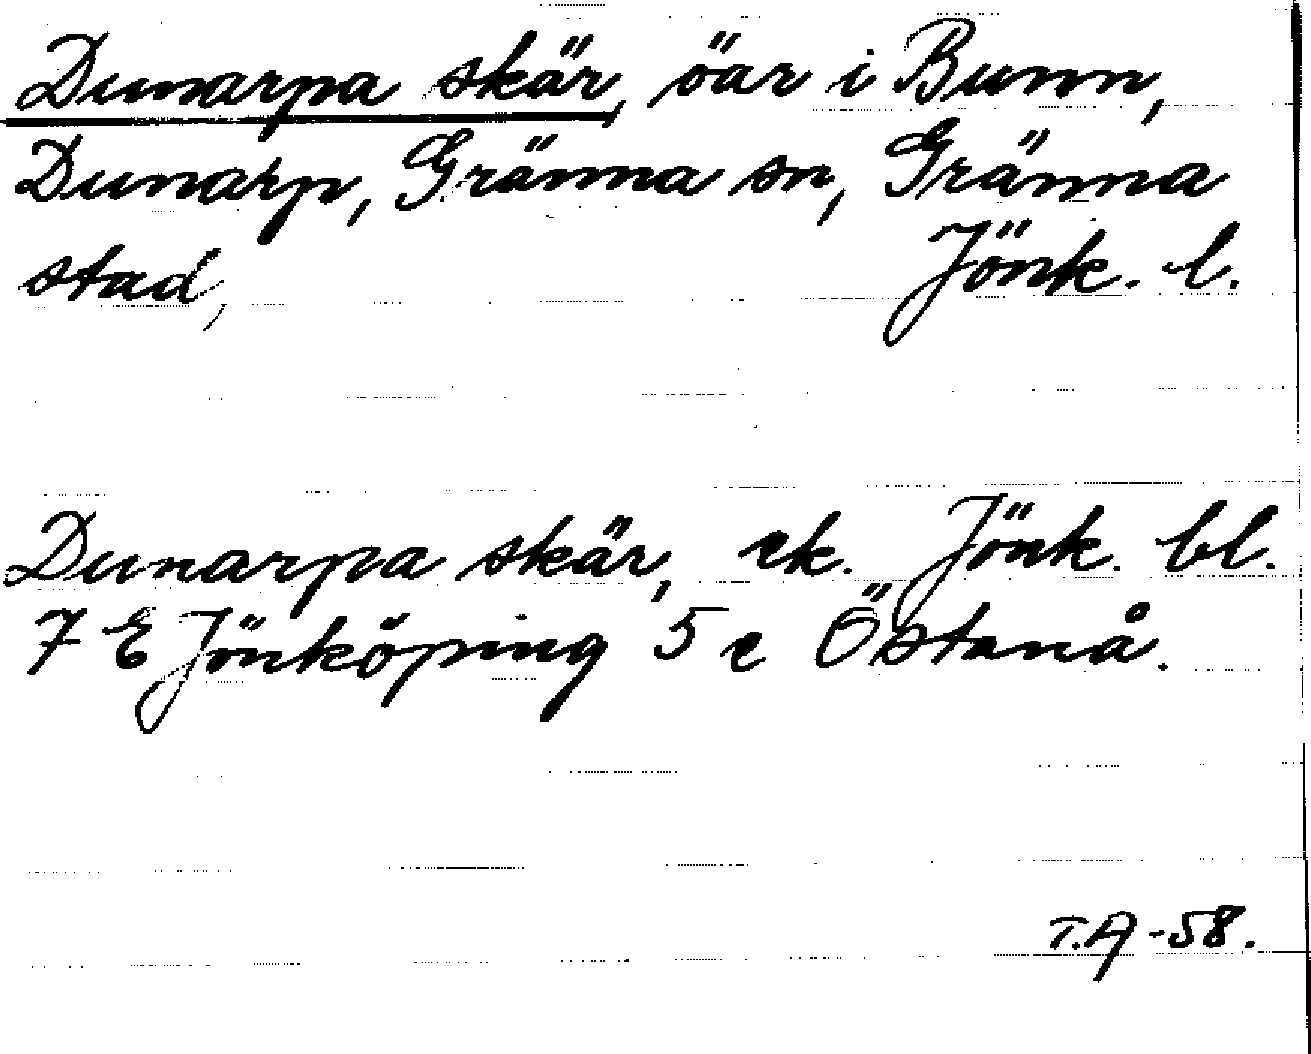 Dunarpa skär, öar i Bunn,
Dunarp, Gränna sn, Gränna
stad, Jönk. l.
Dunarpa skär, ek. Jönk. bl.
7 E Jönköping 5 e Östanå.
T.A -58.